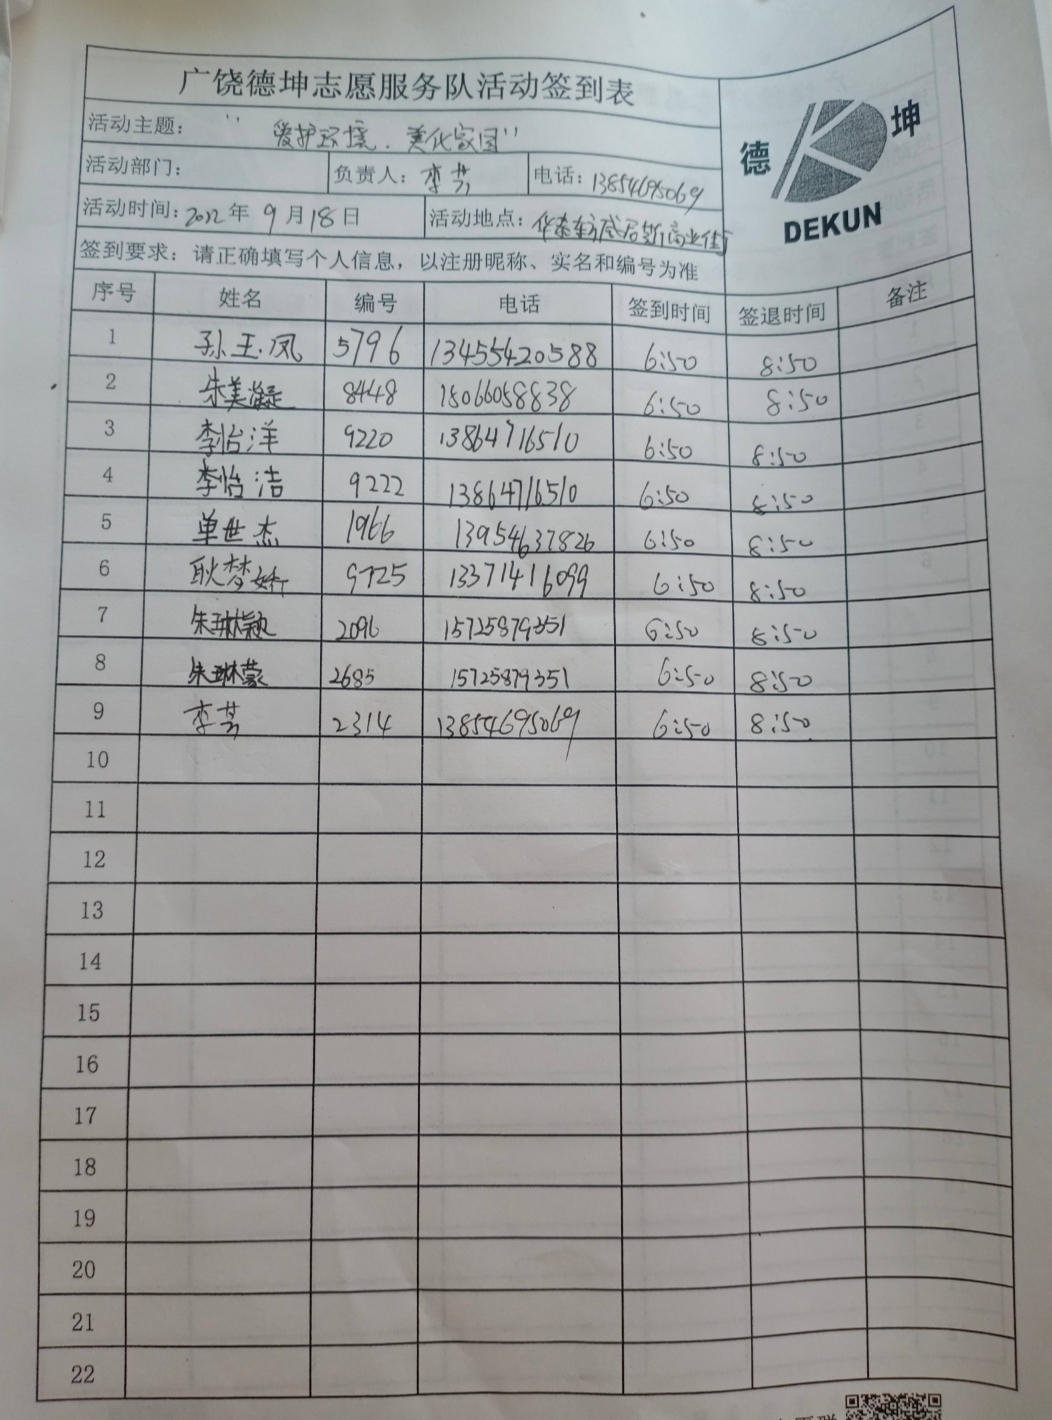 广饶德坤志愿服务队活动签到表
德 坤
DEKUN
活动主题： “爱护环境．美化家园”
活动部门： 负责人：李芸 电话：13854695069
活动时间：2022年9月18日 活动地点：华泰东方盛居 商业街
签到要求：请正确填写个人信息，以注册昵称、实名和编号为准
序号 姓名 编号 电话 签到时间 签退时间 备注
1 孙玉凤 5796 13455420588 6:50 8:50
2 朱美凝 8448 15066058838 6:50 8:50
3 李怡洋 9220 13864716510 6:50 8:50
4 李怡洁 9222 13864716510 6:50 8:50
5 单世杰 1966 13954637826 6:50 8:50
6 耿梦娇 9725 13371416099 6:50 8:50
7 朱琳颖 2096 15725879351 6:50 8:50
8 朱琳蒙 2685 15725879351 6:50 8:50
9 李芸 2314 13854695069 6:50 8:50
10
11
12
13
14
15
16
17
18
19
20
21
22